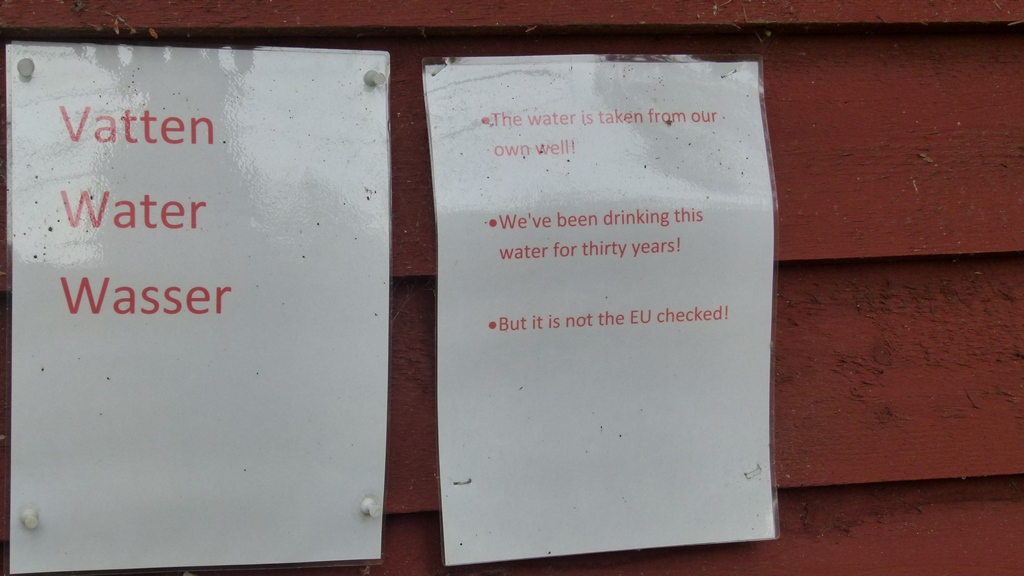 Vatten
Water
Wasser
•The water is taken from our
own well!
•We've been drinking this
water for thirty years!
•But it is not the EU checked!